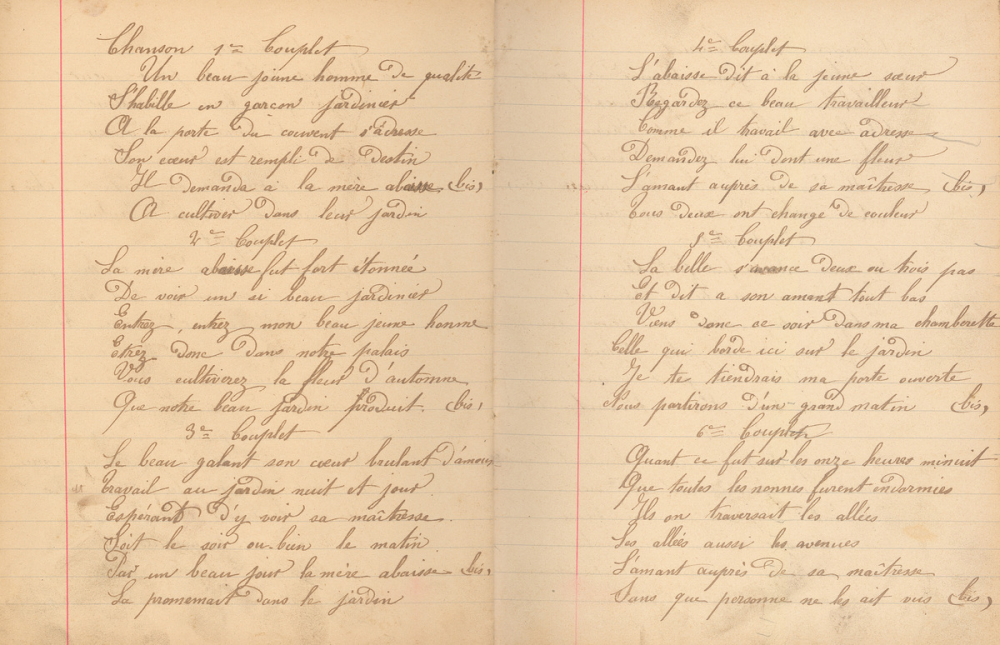 Chanson 1er Couplet
Un beau jeune homme de qualité
S'habille en garcon jardinier
A la porte du couvent s'adresse
Son cœur est rempli de destin
Il demanda à la mère abaisse (bis)
A cultiver dans leur jardin
2e Couplet
La mère abaisse fut fort étonnée
De voir un si beau jardinier
Entrez, entrez mon beau jeune homme
Etrez donc dans notre palais
Vous cultiverez la fleur d'automne
Que notre beau jardin produit. (bis)
3e Couplet
Le beau galant son cœur brulant d'amour
Travail au jardin nuit et jour
Espérant d'y voir sa maîtresse.
Soit le soir ou bien le matin
Par un beau jour la mère abaisse (bis)
La promemait dans le jardin
4e Couplet
L'abaisse dit à la jeune sœur
Regardez ce beau travailleur
Comme il travail avec adresse
Demandez lui dont une fleur
L'amant auprès de sa maîtresse (bis)
Tous deux ont change de couleur
5e Couplet
La belle s'avance deux ou trois pas
Et dit a son amant tout bas
Viens donc ce soir dans ma chamberette
Celle qui borde ici sur le jardin
Je te tiendrais ma porte ouverte
Nous partirons d'un grand matin (bis)
6e Couplet
Quant ce fut sur les onze heures minuit
Que toutes les nonnes furent endormies
Ils on traversait les allées
Les allées aussi les avenues
L'amant auprès de sa maîtresse
Sans que personne ne les ait vus (bis)